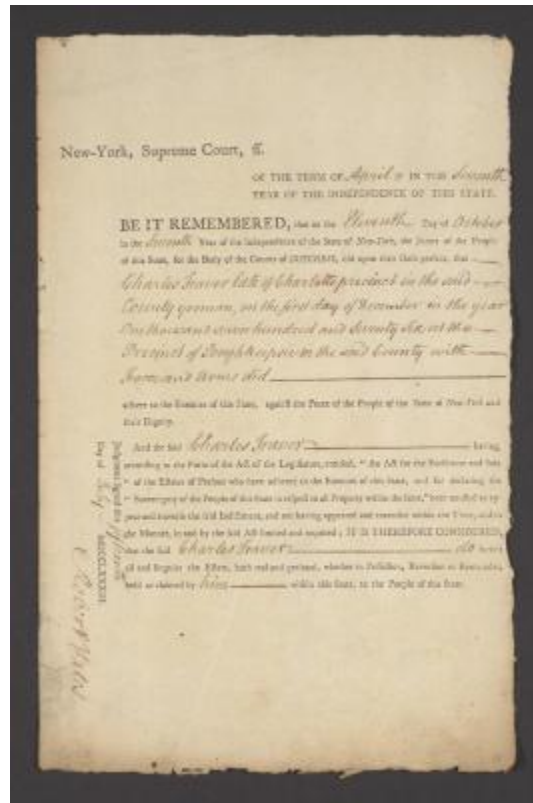 New-York, Supreme Court, ss.
OF THE TERM OF April IN THE Seventh
YEAR OF THE INDEPENDENCE OF THIS STATE.
BE IT REMEMBERED, that on the Eleventh Day of October
in the Seventh Year of the Independence of the State of New-York, the Jurors of the People
of this State, for the Body of the County of DUTCHESS, did upon their Oath present, that
Charles Traver late of Charlotte precinct in the said
County yeoman, on the first day of December in the year
One thousand seven hundred and Seventy Six, at the
Precinct of Poughkeepsie in the said County with
Force and Arms did
adhere to the Enemies of this State, against the Peace of the People of the State of New-York and
their Dignity.
And the said Charles Traver having,
according to the Form of the Act of the Legislature, entitled, "An Act for the Forfeiture and Sale
" of the Estates of Persons who have adhered to the Enemies of this State, and for declaring the
" Sovereignty of the People of this State in respect to all Property within the same," been notified to ap-
pear and traverse the said Indictment, and not having appeared and traversed within the Time, and in
the Manner, in and by the said Act limited and required; IT IS THEREFORE CONSIDERED,
that the said Charles Traver do forfeit
all and singular the Estate, both real and personal, whether in Possession, Reversion or Remainder,
held or claimed by him within this State, to the People of this State.
Judgment signed this
Day of July MDCCLXXXIII